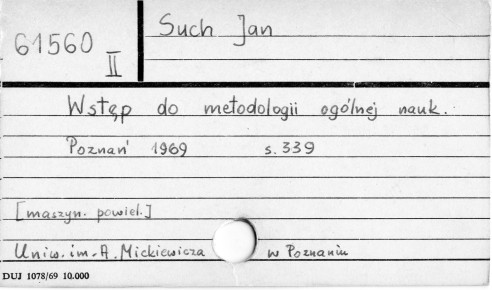 61560
II
Such Jan
Wstęp do metodologii ogólnej nauk.
Poznań 1969 s. 339
[maszyn. powiel.]
Uniw. im. A. Mickiewicza w Poznaniu
DUJ 1078/69 10.000